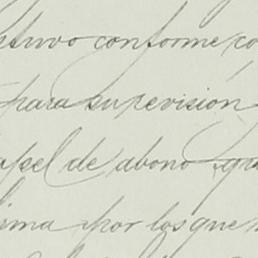 estuvo conforme co
para su revisión
apel de abono que
ima por los que